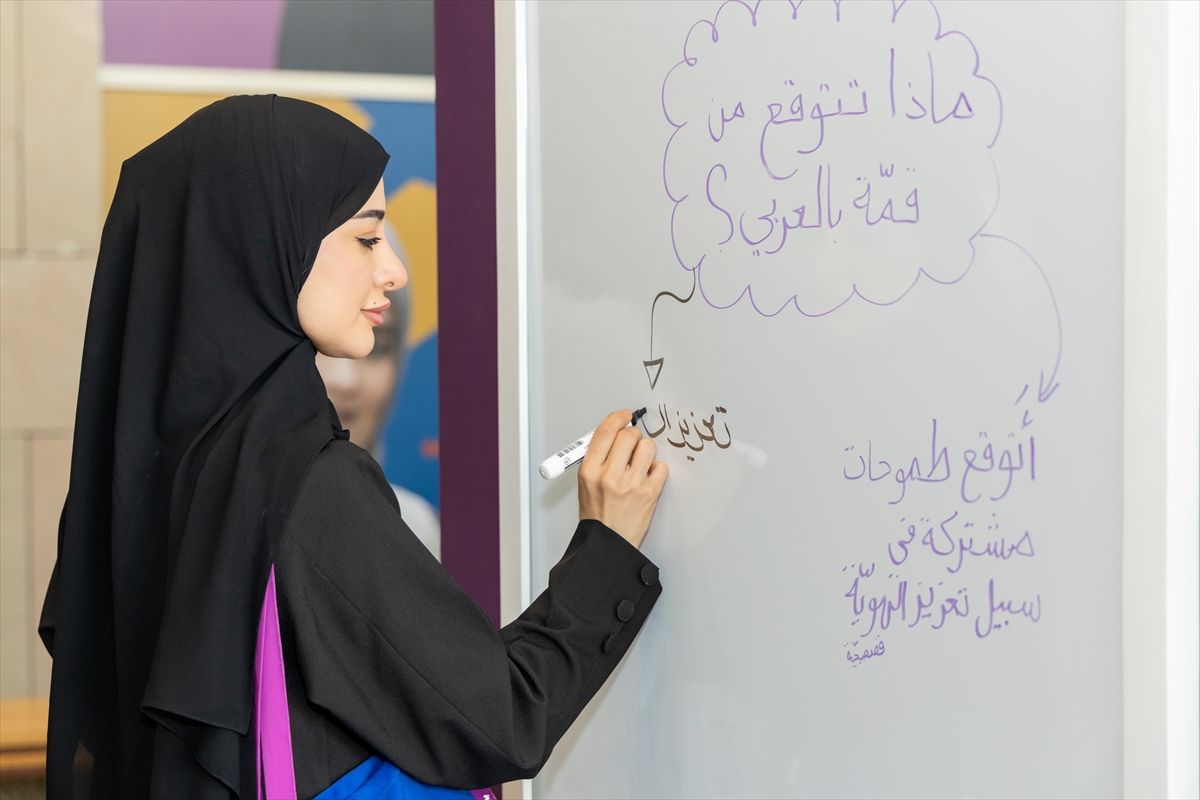 ماذا تتوقع من
قمّة بالعربي؟
تعزيز ال
أتوقع طموحات
مشتركة في
سبيل تعزيز الهويّة